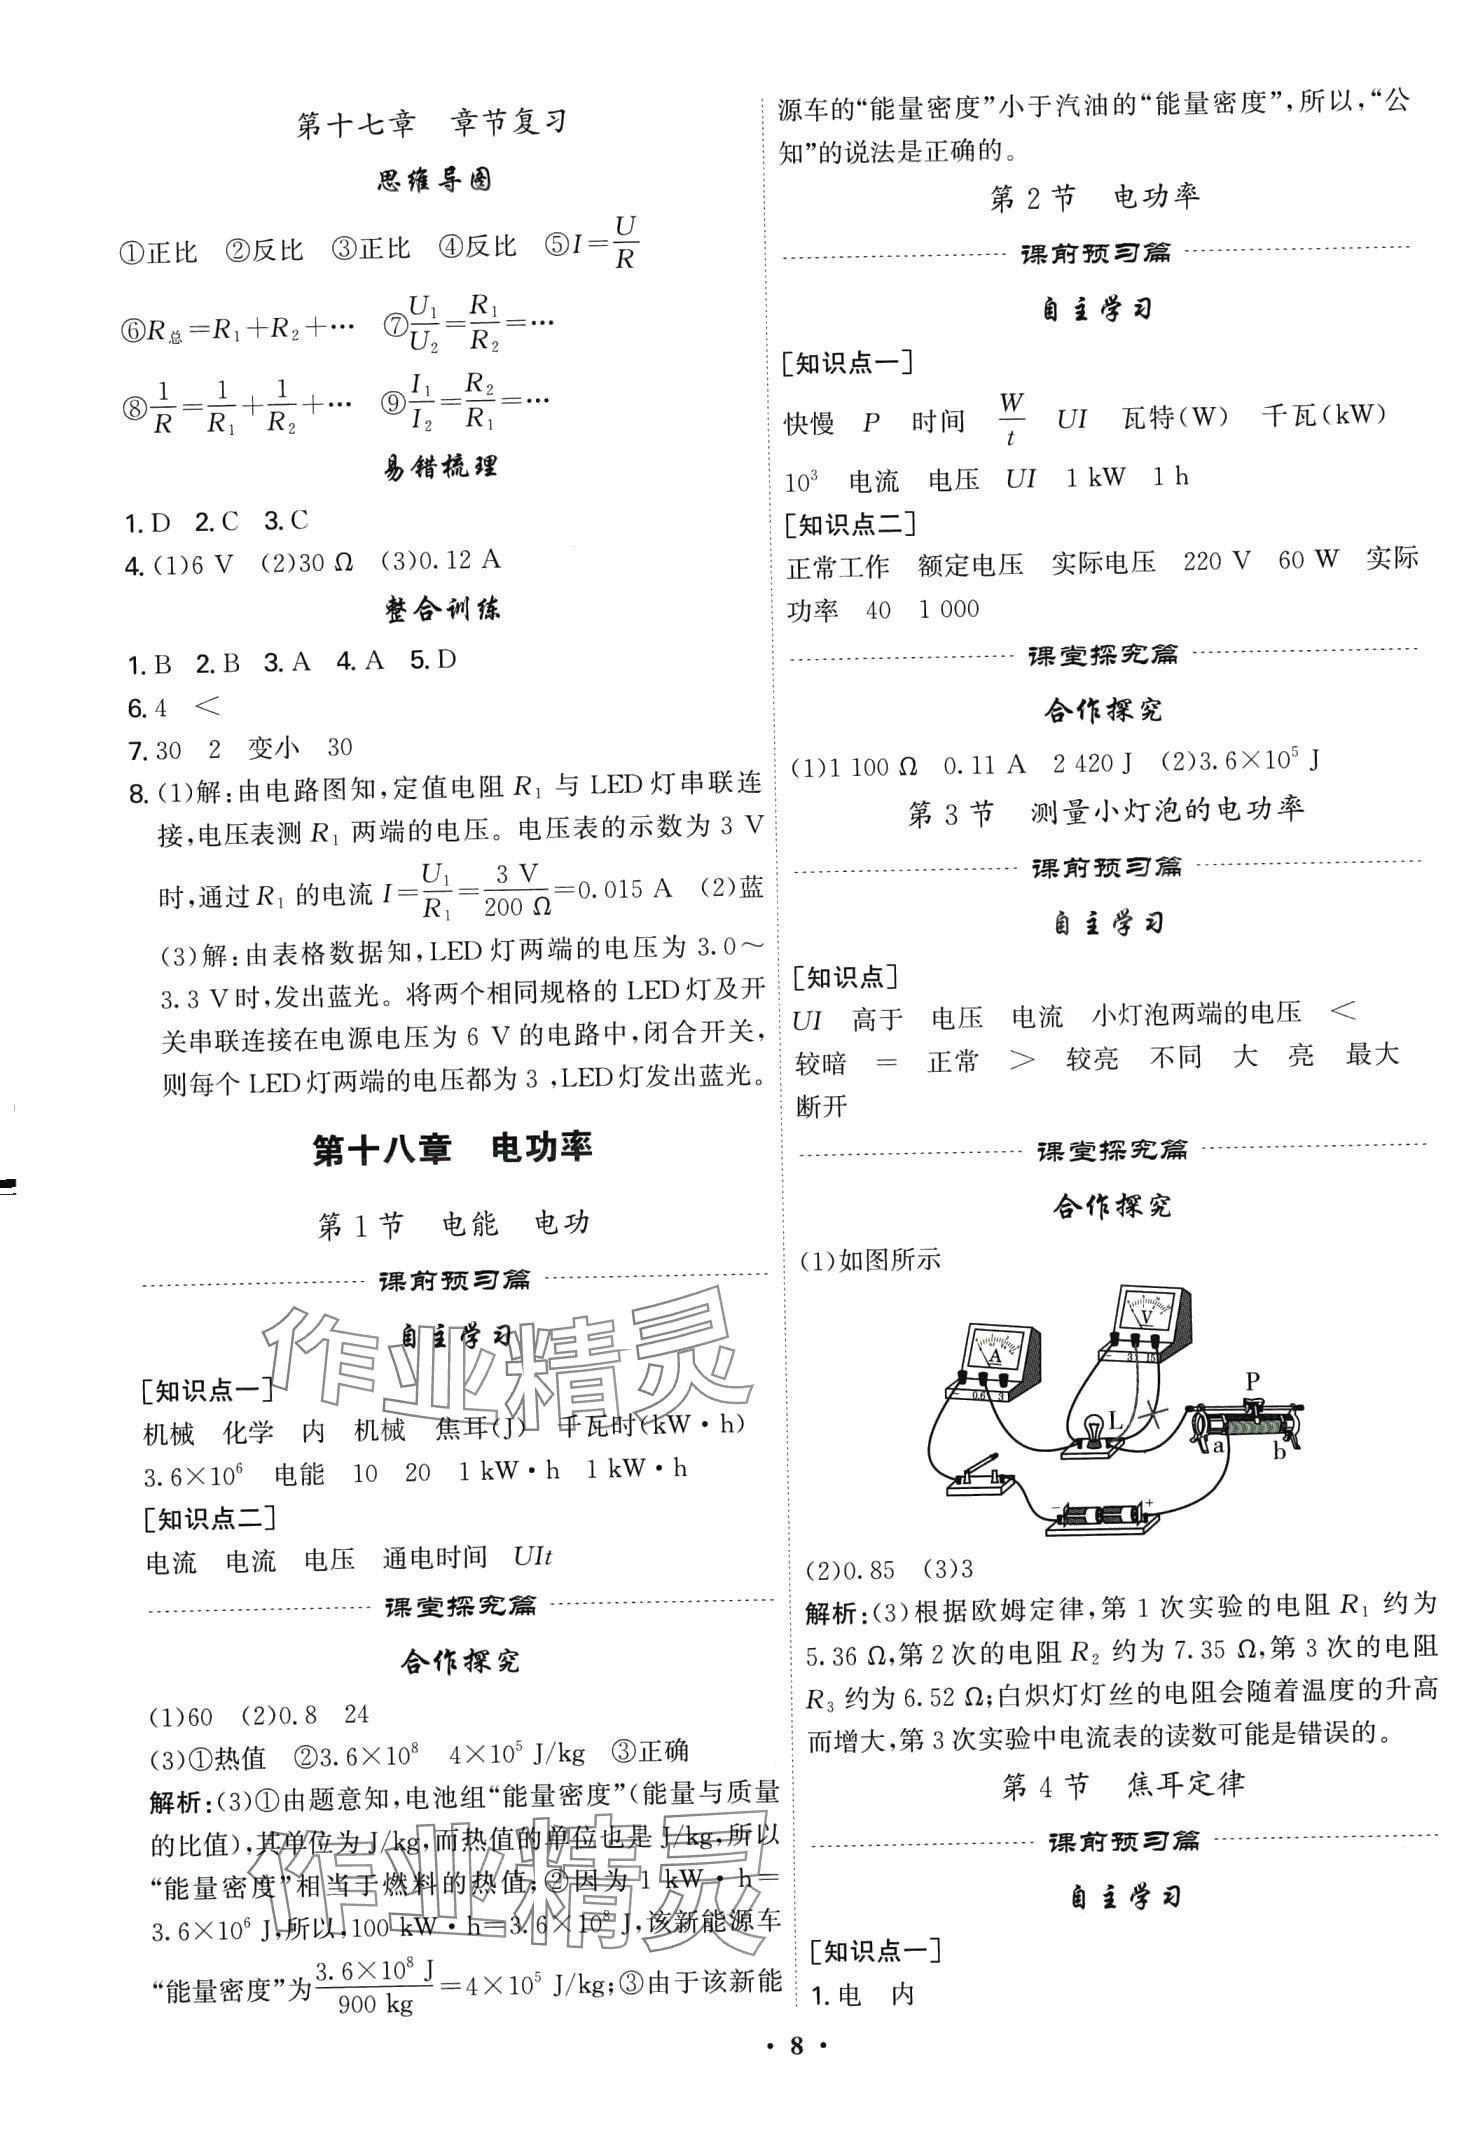 第十七章 章节复习
思维导图
①正比 ②反比 ③正比 ④反比 ⑤I=U/R
⑥R总=R₁+R₂+… ⑦U₁/U₂=R₁/R₂=…
⑧1/R=1/R₁+1/R₂+… ⑨I₁/I₂=R₂/R₁=…
易错梳理
1. D 2. C 3. C
4. (1)6 V (2)30 Ω (3)0.12 A
整合训练
1. B 2. B 3. A 4. A 5. D
6. 4 <
7. 30 2 变小 30
8. (1)解:由电路图知,定值电阻 R₁ 与 LED 灯串联连
接,电压表测 R₁ 两端的电压。电压表的示数为 3 V
时,通过 R₁ 的电流 I=U₁/R₁=3 V/200 Ω=0.015 A (2)蓝
(3)解:由表格数据知,LED 灯两端的电压为 3.0～
3.3 V时,发出蓝光。将两个相同规格的 LED 灯及开
关串联连接在电源电压为 6 V 的电路中,闭合开关,
则每个 LED 灯两端的电压都为 3 ,LED 灯发出蓝光。
第十八章 电功率
第 1 节 电能 电功
课前预习篇
自主学习
[知识点一]
机械 化学 内 机械 焦耳(J) 千瓦时(kW·h)
3.6×10⁶ 电能 10 20 1 kW·h 1 kW·h
[知识点二]
电流 电流 电压 通电时间 UIt
课堂探究篇
合作探究
(1)60 (2)0.8 24
(3)①热值 ②3.6×10⁸ 4×10⁵ J/kg ③正确
解析:(3)①由题意知,电池组“能量密度”(能量与质量
的比值),其单位为 J/kg,而热值的单位也是 J/kg,所以
“能量密度”相当于燃料的热值;②因为 1 kW·h=
3.6×10⁶ J,所以,100 kW·h=3.6×10⁸ J,该新能源车
“能量密度”为3.6×10⁸ J/900 kg=4×10⁵ J/kg;③由于该新能
源车的“能量密度”小于汽油的“能量密度”,所以,“公
知”的说法是正确的。
第 2 节 电功率
课前预习篇
自主学习
[知识点一]
快慢 P 时间 W/t UI 瓦特(W) 千瓦(kW)
10³ 电流 电压 UI 1 kW 1 h
[知识点二]
正常工作 额定电压 实际电压 220 V 60 W 实际
功率 40 1 000
课堂探究篇
合作探究
(1)1 100 Ω 0.11 A 2 420 J (2)3.6×10⁵ J
第 3 节 测量小灯泡的电功率
课前预习篇
自主学习
[知识点]
UI 高于 电压 电流 小灯泡两端的电压 <
较暗 = 正常 > 较亮 不同 大 亮 最大
断开
课堂探究篇
合作探究
(1)如图所示
V
- 3 15
A
- 0.6 3
L
P
a b
- +
(2)0.85 (3)3
解析:(3)根据欧姆定律,第 1 次实验的电阻 R₁ 约为
5.36 Ω,第 2 次的电阻 R₂ 约为 7.35 Ω,第 3 次的电阻
R₃ 约为 6.52 Ω;白炽灯灯丝的电阻会随着温度的升高
而增大,第 3 次实验中电流表的读数可能是错误的。
第 4 节 焦耳定律
课前预习篇
自主学习
[知识点一]
1. 电 内
· 8 ·
作业精灵
作业精灵